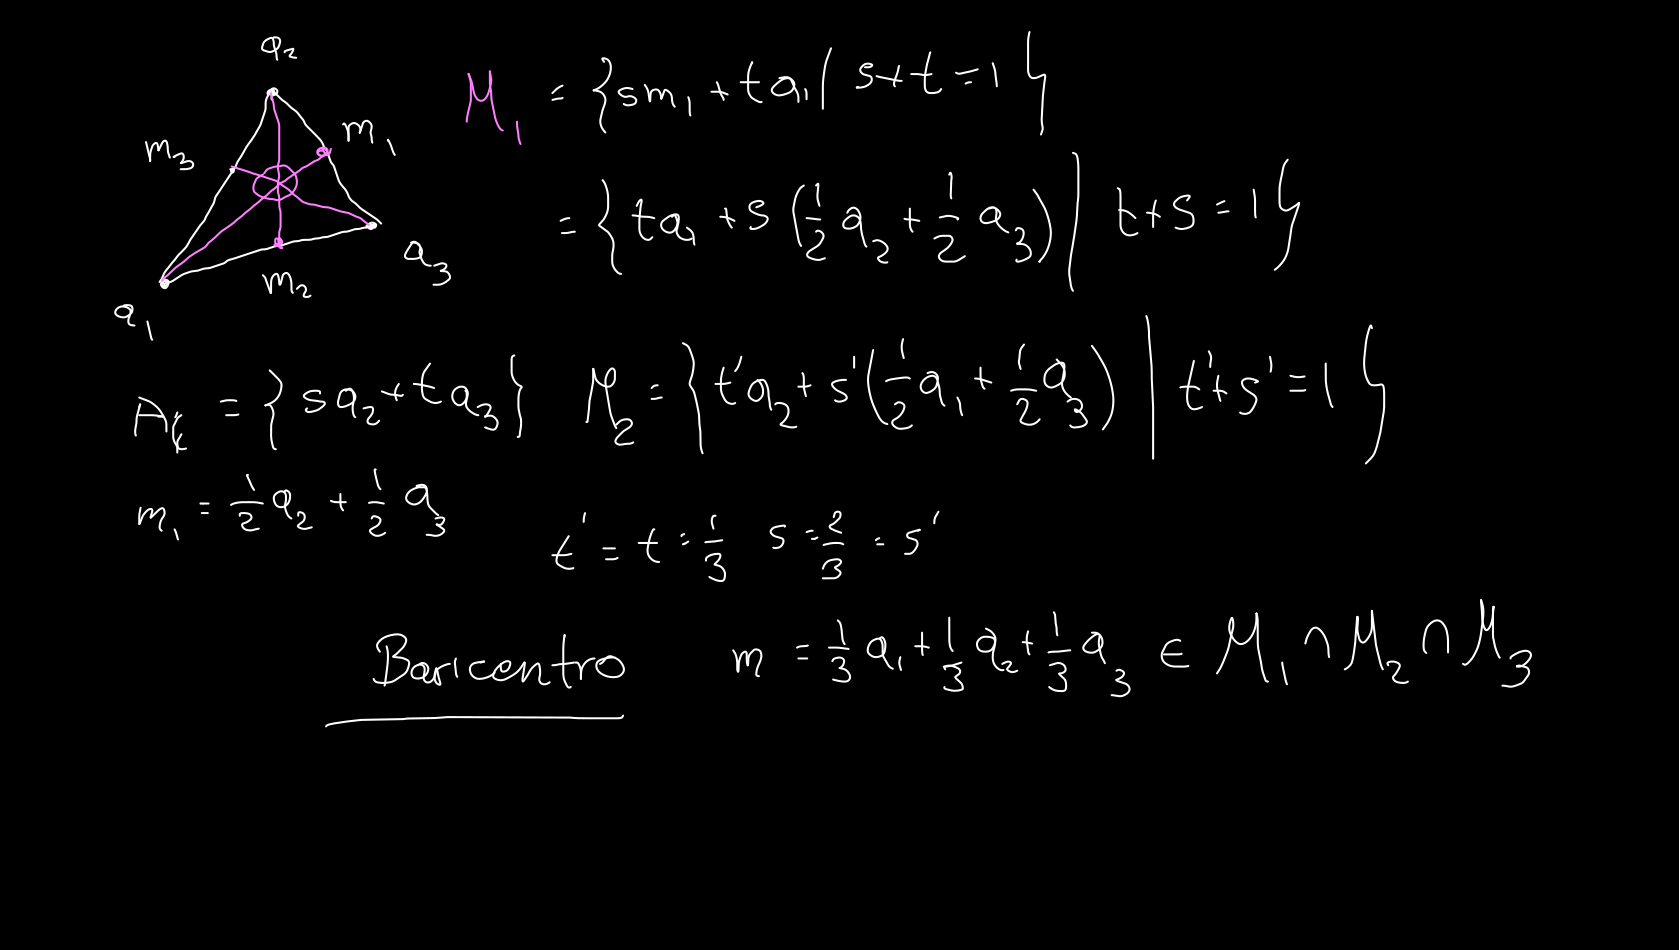 a₂
m₃
m₁
a₃
m₂
a₁
M₁ = {sm₁ + ta₁ | s+t=1}
= {ta₁ + s(½a₂ + ½a₃) | t+s=1}
= {sa₂ + ta₃}
M₂ = {t'a₂ + s'(½a₁ + ½a₃) | t'+s'=1}
m₁ = ½a₂ + ½a₃
t' = t = 1/3 s = 2/3 = s'
Baricentro m = 1/3 a₁ + 1/3 a₂ + 1/3 a₃ ∈ M₁ ∩ M₂ ∩ M₃